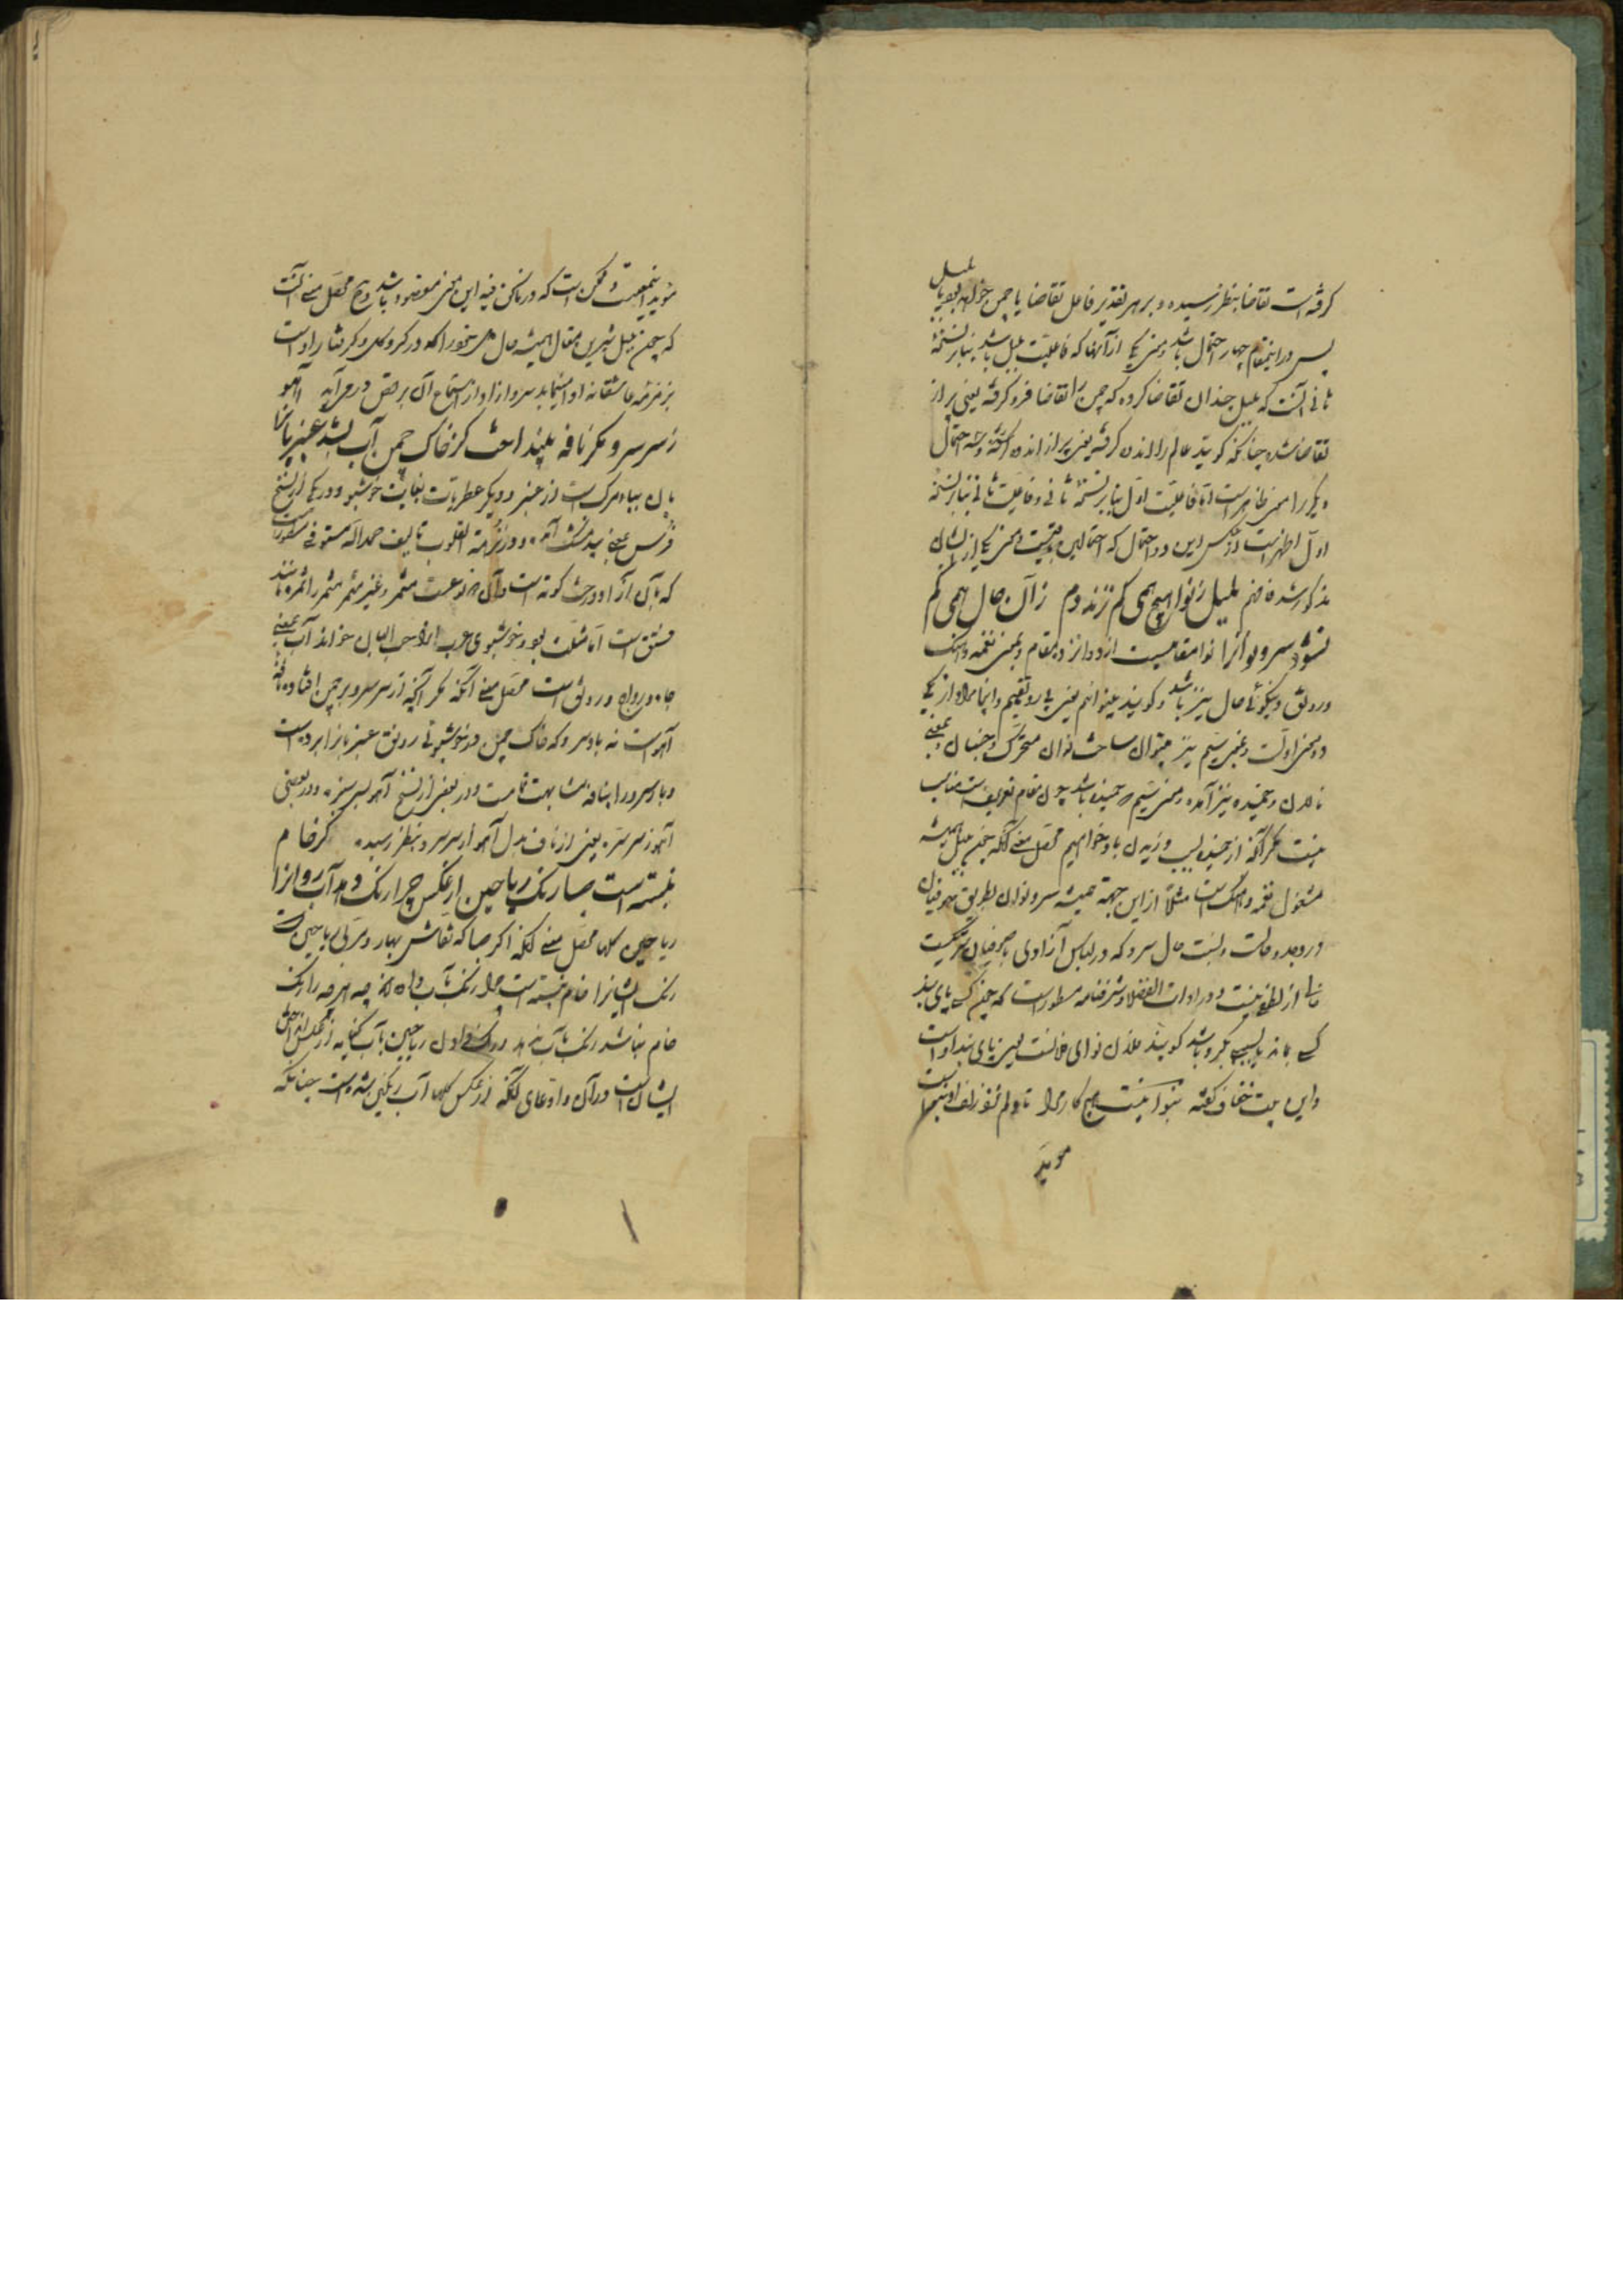 کرفته است تقاضا بنظر رسیده و بر هر تقدیر فاعل تقاضا یا چمن خواهد بود یا بلبل
پس درین مقام چهار احتمال باشد و معنی یکی از آنها که فاعلیت بلبل باشد بنابر نسخهٔ
ثانی آنست که بلبل چندان تقاضا کرده که چمن را تقاضا فرو کرفته یعنی پر از
تقاضا شده چنانکه کویند عالم را اندوه کرفته یعنی پر از اندوه کشته و سه احتمال
دیکر را معنی ظاهر است اما فاعلیت اول بنابر نسخهٔ ثانی و فاعلیت ثانی بنابر نسخهٔ
اول اظهر است از عکس این دو احتمال که احتمالین و معنی یکی ازیشان
مذکور شد فافهم بلبل ز نوا هیچ همی کم نزند دم زان حال همی کم
نشود سرو نوان را نوا مقامیست از دوازده مقام و بمعنی نغمه و آهنک
و رونق و نیکوئی حال نیز باشد و کویند بینوائیم یعنی بی رونقیم و اینجا مراد از یکی
دو معنی اولست و نوان متحرک و جنبان و بمعنی
نالان و خمیده نیز آمده و معنی سیم خمیده باشد چون مقام تعریف است مناسب
نیست مکر آنکه از خمیده و زیدن باد خواهیم محصل معنی آنکه چون بلبل همیشه
مشغول نغمه و آهنک است مثلاً از این جهة همیشه سرو نوان بطریق صوفیان
در وجد و حالت و نسبت حال سرو که در لباس آزادی با صوفیان شریکست
خالی از لطفی نیست و در ادات الفضلا و شرفنامه مسطور است که چون کسی پای بند
کسی بماند یا بسببی بکرو باشد کویند فلان نوای فلانست یعنی پای بند اوست
و این بیت خفاف کفته نیست هیچ کار مرا تا دلم نزد زلف او بنواست
موید
موید اینمعنیست و ممکن است که در ما نحن فیه این معنی مقصود باشد و ح محصل معنی آنست
که چون بلبل شیرین مقال همیشه حال خود را که در کرو کل و کرفتار اوست
بزمزمه عاشقانه ادا مینماید سرو آزاد از استماع آن برقص در می آید آهو
ز سر سرو مکر نافه بینداخت کز خاک چمن آب بشد عنبر و بان را
بان بیاه مرکب است از عنبر و دیکر عطریات بغایت خوشبو و در یکی از نسخ
فرس بمعنی بیدمشک آمده و در نزهة القلوب تالیف حمداله مستوفی مسطور است
که بان آزاد درخت کونه است و آن دو نوعست مثمر و غیر مثمر مثمر را ثمره مانند
فستق است اما مثلث بود و خوشبوی عرب آنرا حب البان خوانند آب بمعنی
جاه و رواج و رونق است محصل معنی آنکه مکر آنچه از سر سرو بر چمن افتاده نافهٔ
آهوست نه باد سرو که خاک چمن در خوشبوئی رونق عنبر و بان را برده است
و باد سرو را بنافه مشابهت تمامست و در بعضی از نسخ آهو بسر سبزه و در بعضی
آهو ز سر سره یعنی از ناف بدل آهو از سر سرو بنظر رسیده کر خام
نبسته است صبا رنک ریاحین از عکس چرا رنک دهد آب روان را
ریاحین کلها محصل معنی آنکه اکر صبا که نقاش بهار و مربی ریاحین است
رنک ایشانرا خام نبسته است چرا رنک بآب داده چه هر چه را رنک
خام نباشد رنک بآب ندهد و رنک دادن ریاحین بآب کنایه از عکس انداختن
ایشان است در آن و ادعای آنکه از عکس کلها آب رنکین شده است چنانکه